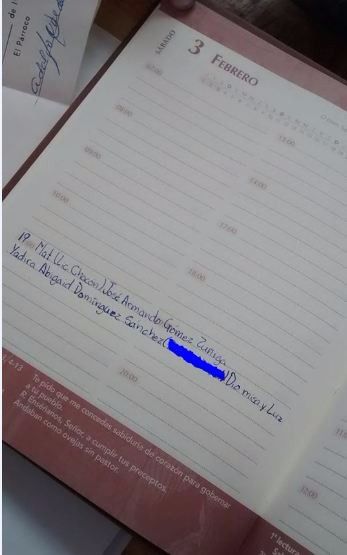 de l
El Párroco
SÁBADO
3 FEBRERO
08:00
09:00
10:00
17:00
18:00
19:00 Mat (Lic Chacon) José Armando Gómez Zuñiga
Yadira Abigaid Dominguez Sanchez( )Dio misa y Luz
20:00
3, 4-13
Te pido que me concedas sabiduría de corazón para gobernar
a tu pueblo.
R. Enséñanos, Señor, a cumplir tus preceptos.
Andaban como ovejas sin pastor.
1ª lectura